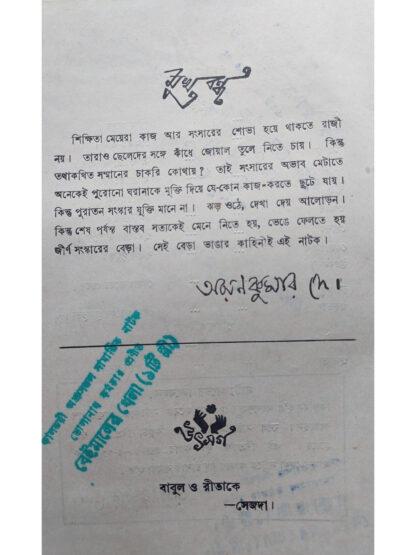 মুখবন্ধ
শিক্ষিতা মেয়েরা কাজ আর সংসারের শোভা হয়ে থাকতে রাজী
নয়। তারাও ছেলেদের সঙ্গে কাঁধে জোয়াল তুলে নিতে চায়। কিন্তু
তথাকথিত সম্মানের চাকরি কোথায়? তাই সংসারের অভাব মেটাতে
অনেকেই পুরোনো ঘরানাকে মুক্তি দিয়ে যে-কোন কাজ-করতে ছুটে যায়।
কিন্তু পুরাতন সংস্কার যুক্তি মানে না। ঝড় ওঠে, দেখা দেয় আলোড়ন।
কিন্তু শেষ পর্যন্ত বাস্তব সত্যকেই মেনে নিতে হয়, ভেঙে ফেলতে হয়
জীর্ণ সংস্কারের বেড়া। সেই বেড়া ভাঙার কাহিনীই এই নাটক।
অরুণকুমার দে।
সামাজিক নাটক
বেইমানের খেলা (১টি স্ত্রী)
উৎসর্গ
বাবুল ও রীতাকে
—সেজদা।